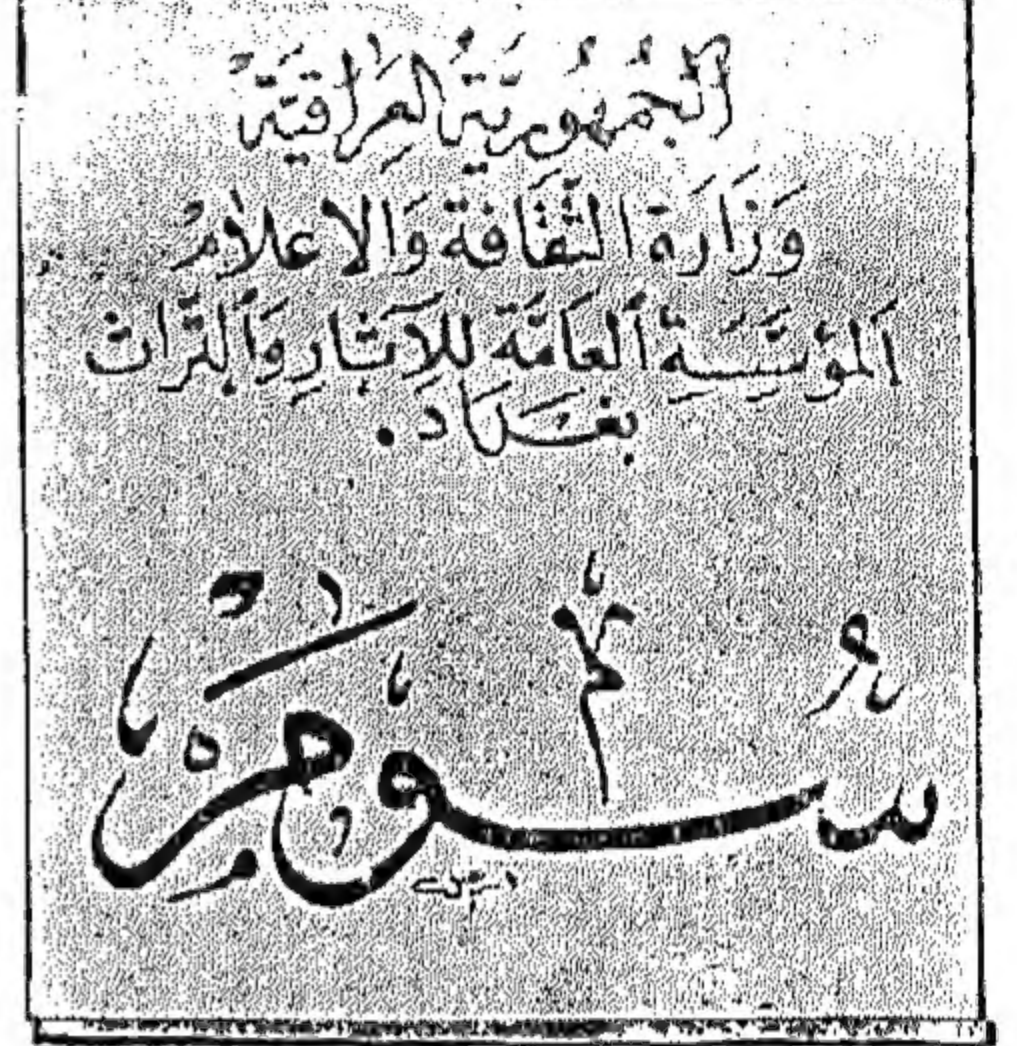 الجُمهُوريَّةُ العِرَاقيَّة
وَزَارَة الثَّقَافَة وَالإعلامُ
اَلمؤسَّسَةِ العَامَّة للآثَارِ وَالتراث
بغـداد.
سُومَر